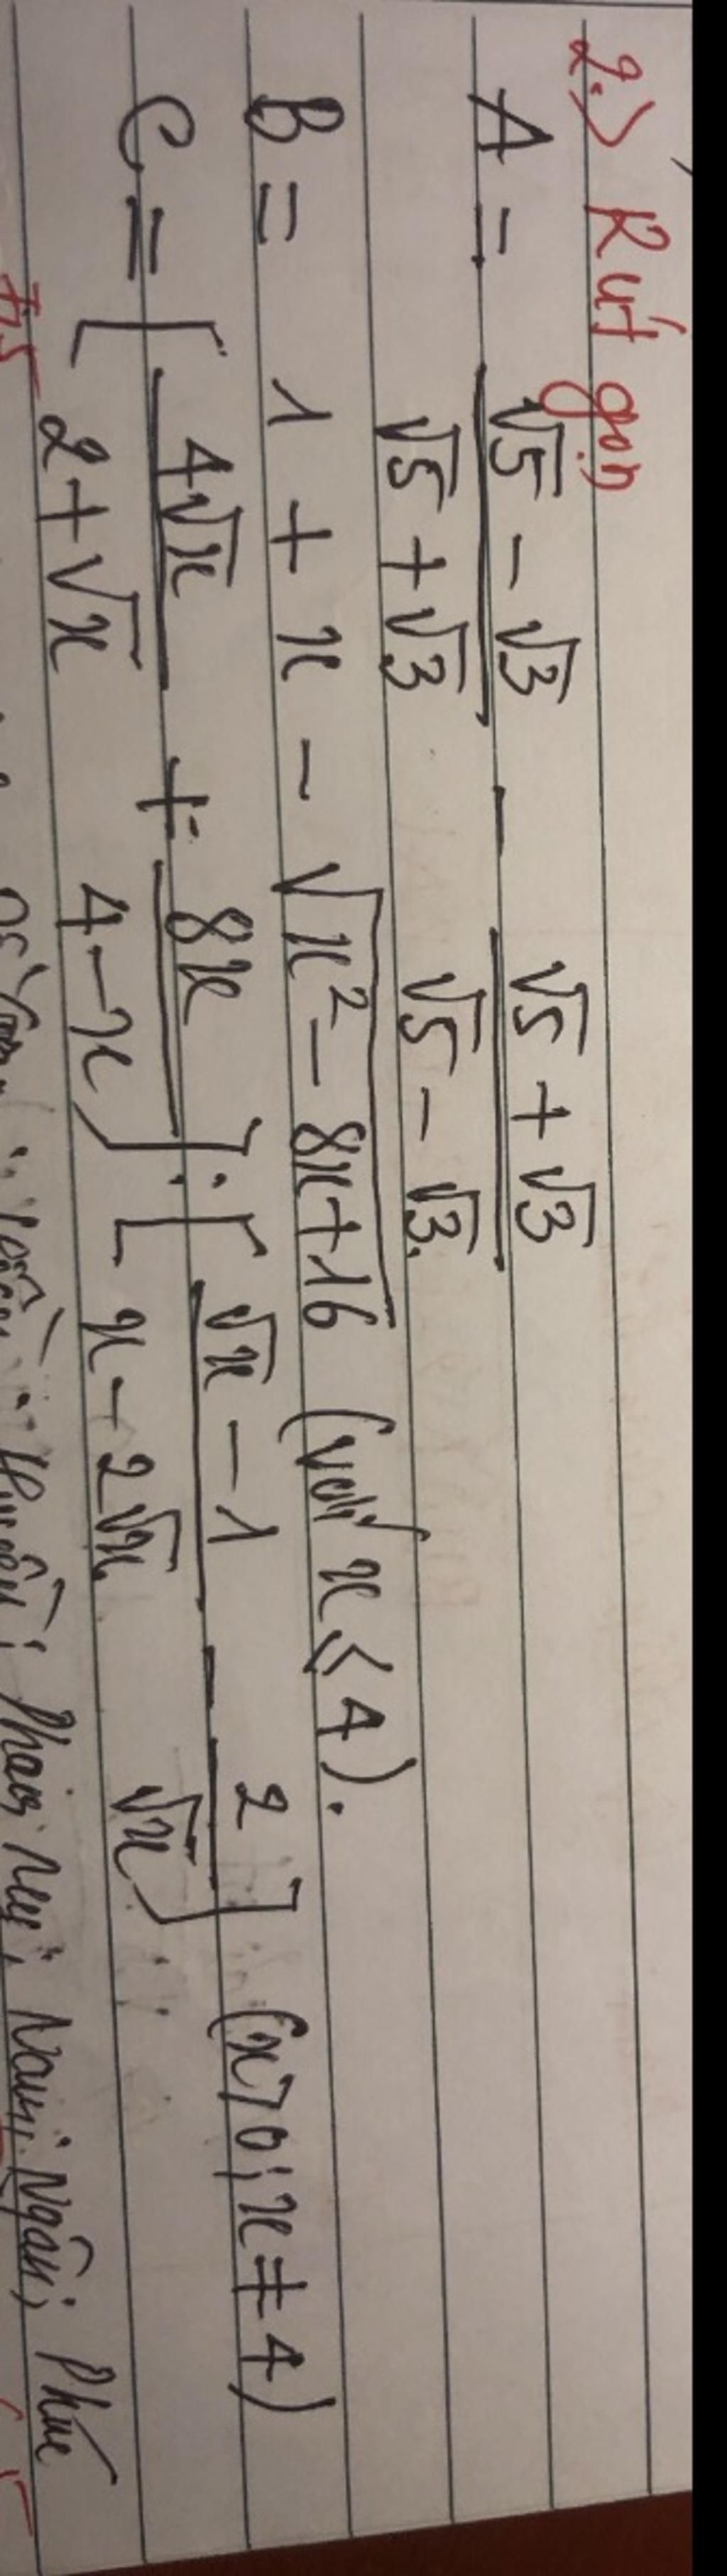 2.> Rút gọn
A = (√5 - √3)/(√5 + √3) - (√5 + √3)/(√5 - √3)
B = 1 + x - √(x² - 8x + 16) (với x ≤ 4).
C = [4√x/(2 + √x) + 8x/(4 - x)] : [(√x - 1)/(x - 2√x) - 2/√x] (x > 0; x ≠ 4)
Nam; Ngân; Phúc